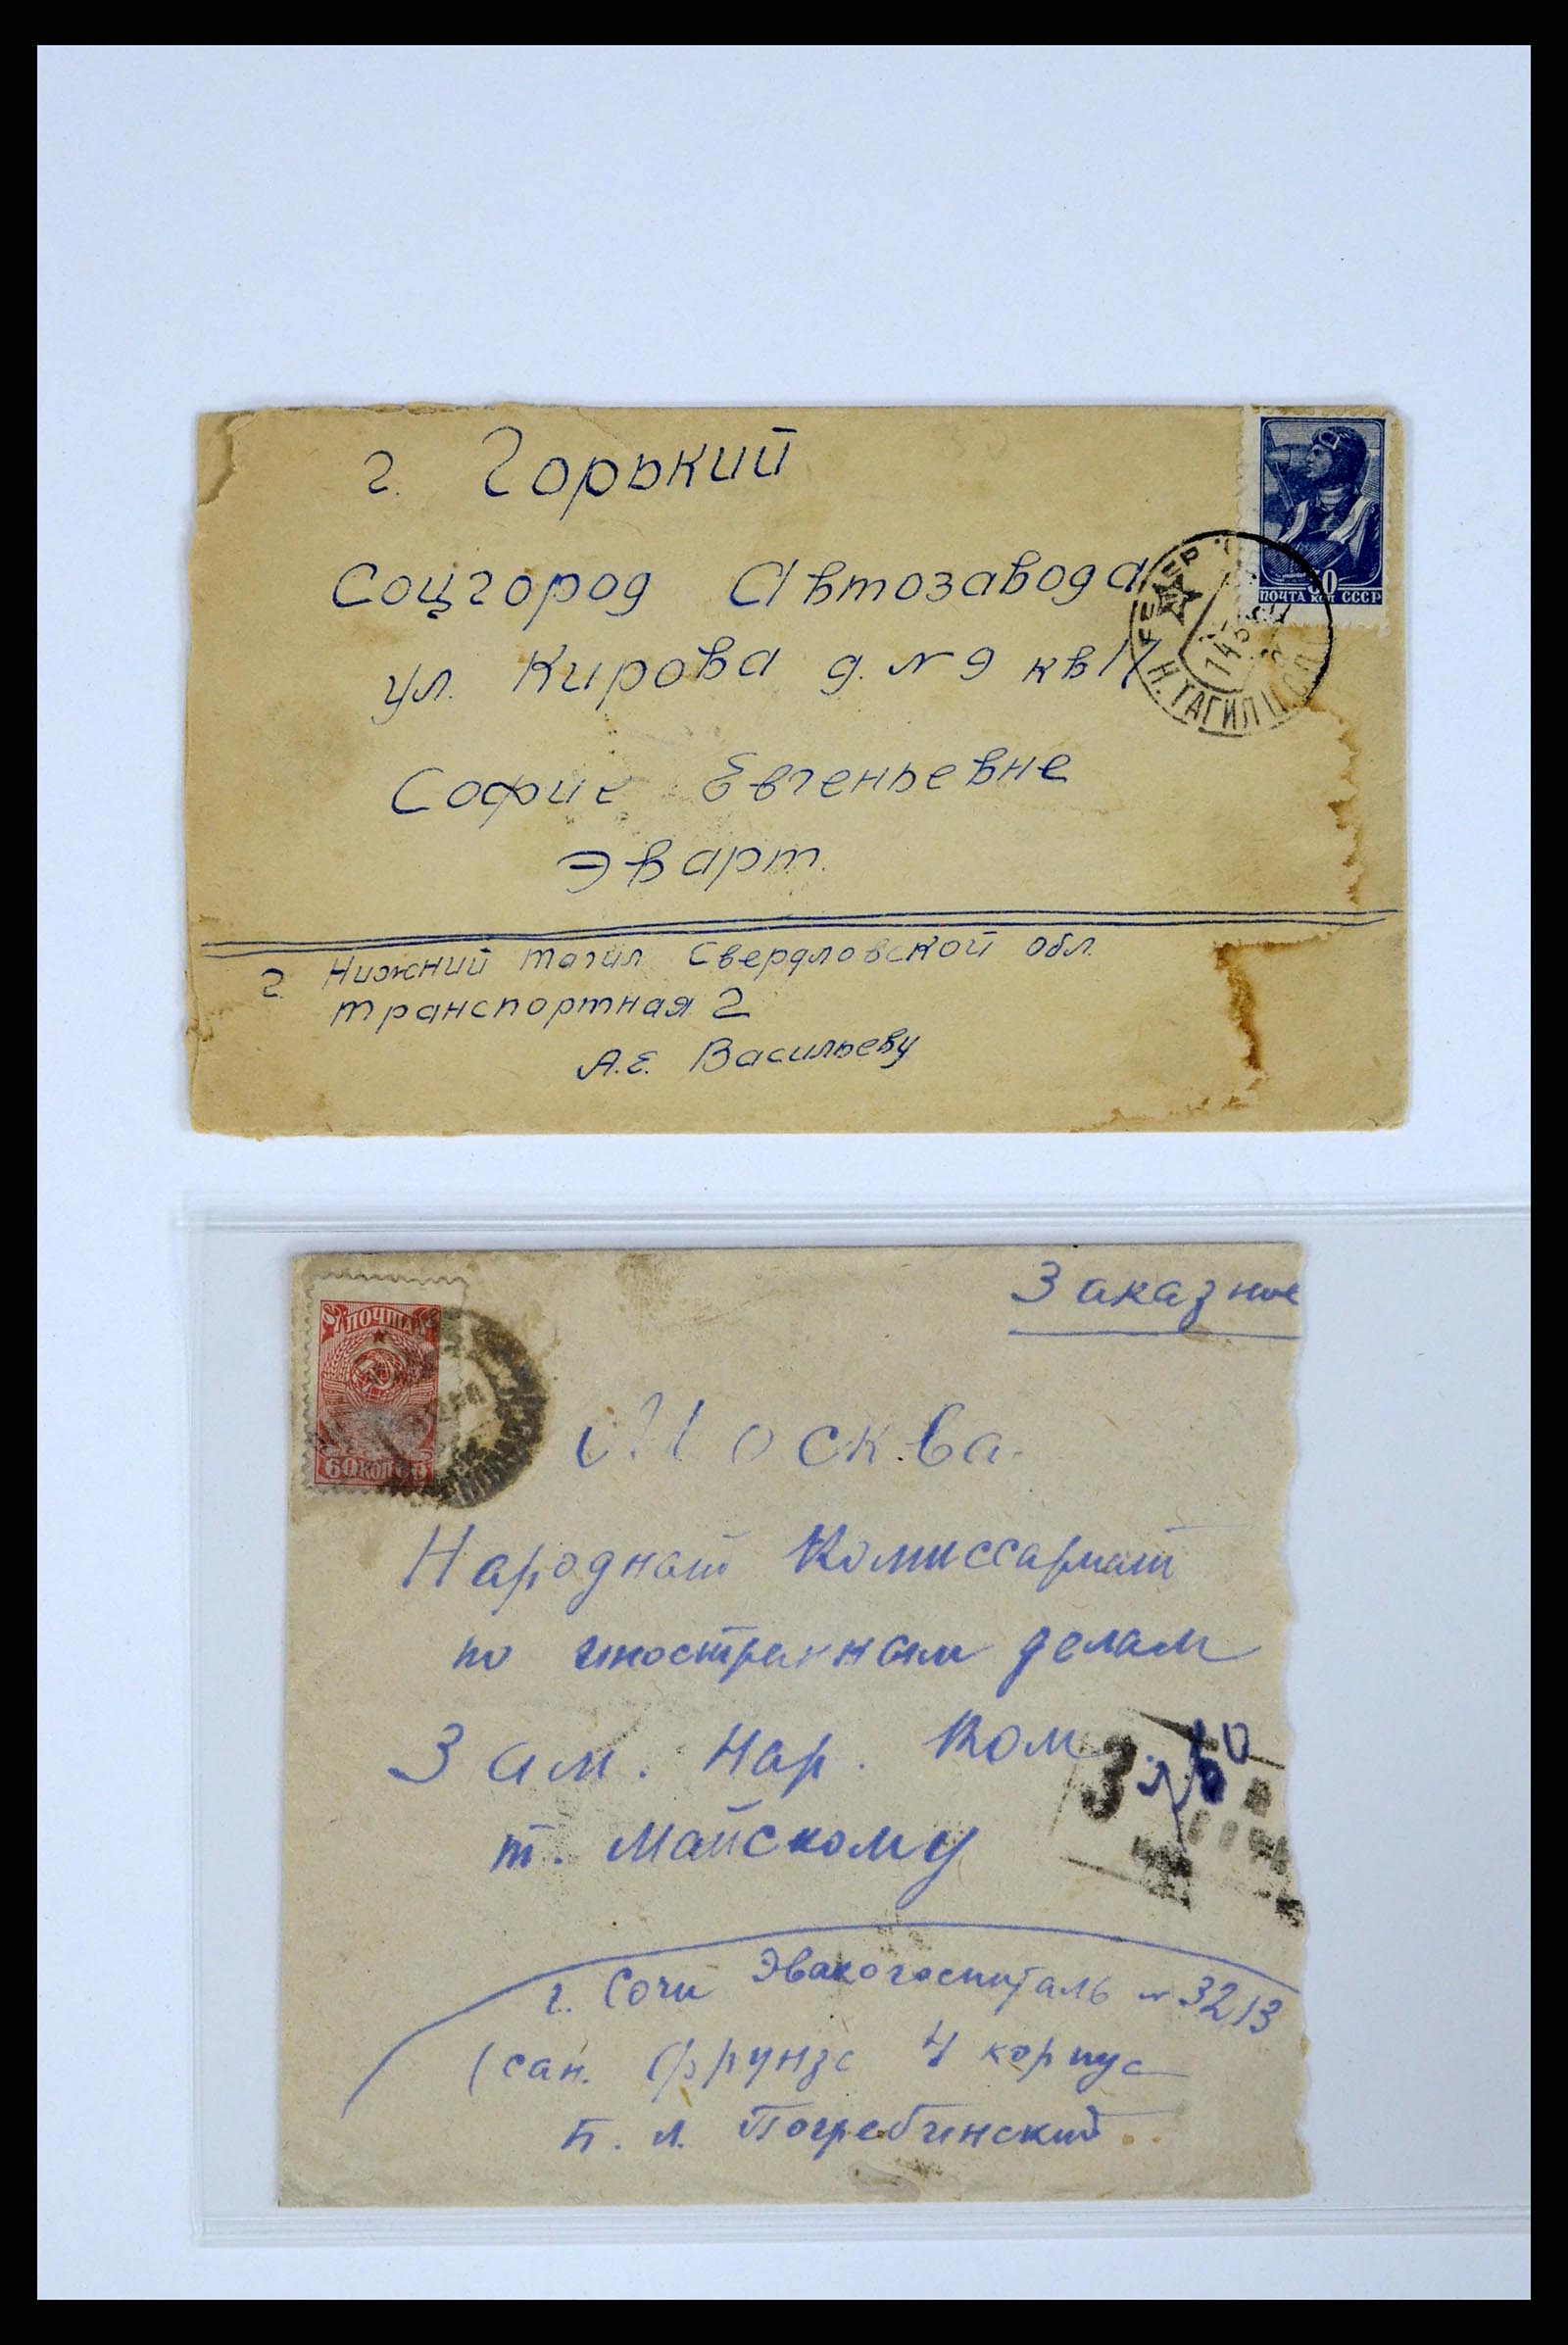 г. Горький
Соцгород Автозавода
ул. Кирова д. № 9 кв
Софие Евгеньевне
Эварт.
г. Нижний Тагил Свердловской обл.
транспортная 2
А.Е. Васильеву
ПОЧТА КОП СССР
Н. ТАГИЛ
Заказное
ПОЧТА
60 КОП
Москва.
Народнат Комиссариат
по иностранным делам
Зам. Нар. Ком
т. Майскому
г. Сочи Эвакогоспиталь № 3213
(сан. Фрунзе 4 корпус
Б. Л. Погребинский.